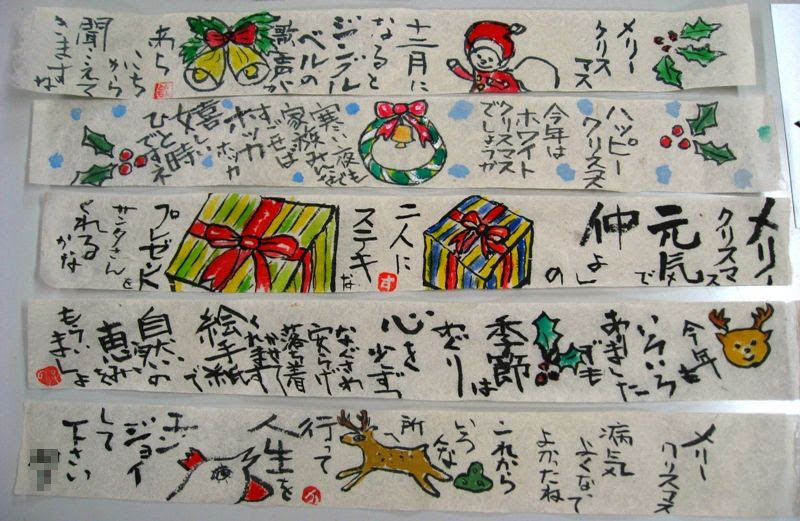 メリー
クリスマス
十二月に
なると
ジングル
ベルの
歌声が
あち
こちから
聞こえて
きますね
ハッピー
クリスマス
今年は
ホワイト
クリスマス
でしょうか
寒い夜でも
家族みんなで
すごせば
ホッカホッカ
嬉しい
ひと時
ですネ
メリー
クリスマス
元気で
仲よし
の
二人に
ステキな
プレゼントを
サンタさん
くれる
かな
今年も
いろいろ
おきました
でも
季節は
めぐり
心を
少しずつ
なぐさめ
安らげ
落ち着
かせて
くれます
絵手紙で
自然の
恵みを
メリー
クリスマス
病気
よくなって
よかったね
これから
いろんな
所へ
行って
人生を
エン
ジョイ
して
下さい